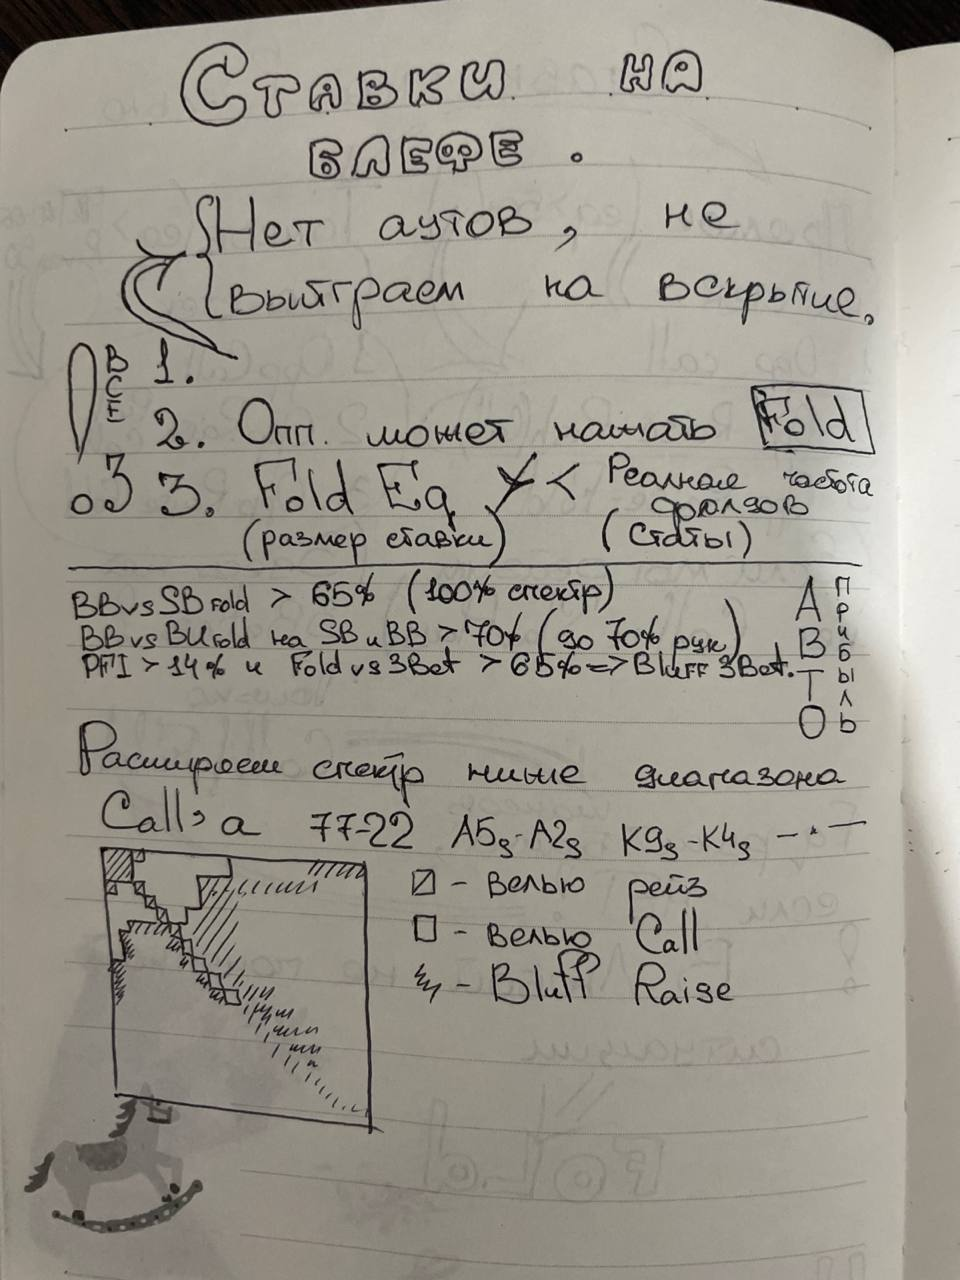 Ставки на
блефе.
Нет аутов, не
выйграем на вскрытие,
ВСЕ 1.
2. Опп. может нажать Fold
3 3. Fold Eq < Реалная частота
фолдов
(размер ставки) (Статы)
BBvsSB Fold > 65% (100% спектр)
BBvsBU Fold на SB и BB > 70% (до 70% рук)
PFI > 14% и Fold vs 3Bet > 65% => Bluff 3Bet.
АВТО ПРИБЫЛЬ
Расширяем спектр ниже диапазона
Call'a 77-22 A5s-A2s K9s-K4s
- велью рейз
- велью Call
- Bluff Raise